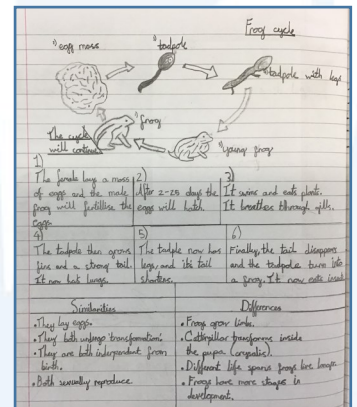 Frog cycle
1) egg mass
1) tadpole
tadpole with legs
1) young frog
1) frog
The cycle
will continue
1)
The female lays a mass
of eggs and the male
frog will fertilise the
eggs.
2)
After 2-25 days the
eggs will hatch.
3)
It swims and eats plants.
It breathes through gills.
4)
The tadpole then grows
fins and a strong tail.
It now has lungs.
5)
The tadple now has
legs, and its tail
shortens.
6)
Finally, the tail disappears
and the tadpole turns into
a frog. It now eats insects.
Similarities
• They lay eggs.
• They both undergo transformation.
• They are both independent from
birth.
• Both sexually reproduce
Differences
• Frogs grow limbs.
• Caterpillar transforms inside
the pupa (crysalis).
• Different life spans frogs live longer.
• Frogs have more stages in
development.